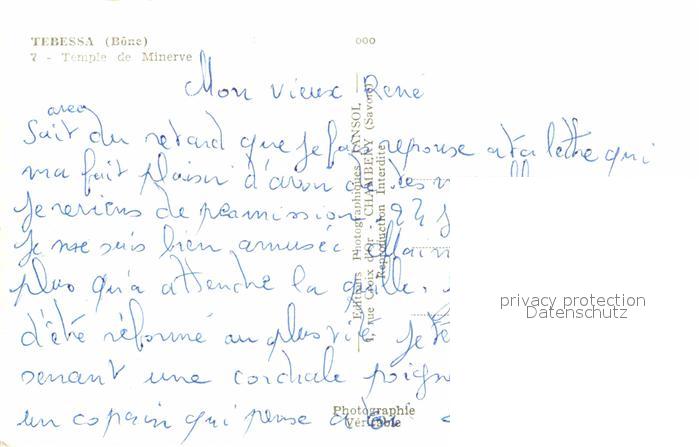 TEBESSA (Bône)
7 - Temple de Minerve
000
Mon vieux René
avec
Sait du retard que je fait reponse a ta lettre qui
ma fait plaisir d'avoir de tes
Je reviens de peamission 24 J
Je me suis bien amusée
plus qu'a attendre la quille.
d'êtê réformé au plus vite Je te
senant une cordiale poign
un copain qui pense a toi
Editions Photographiques CANSOL
1, rue Croix d'or - CHAMBERY (Savoie)
Reproduction Interdite
Photographie
Véritable
privacy protection
Datenschutz